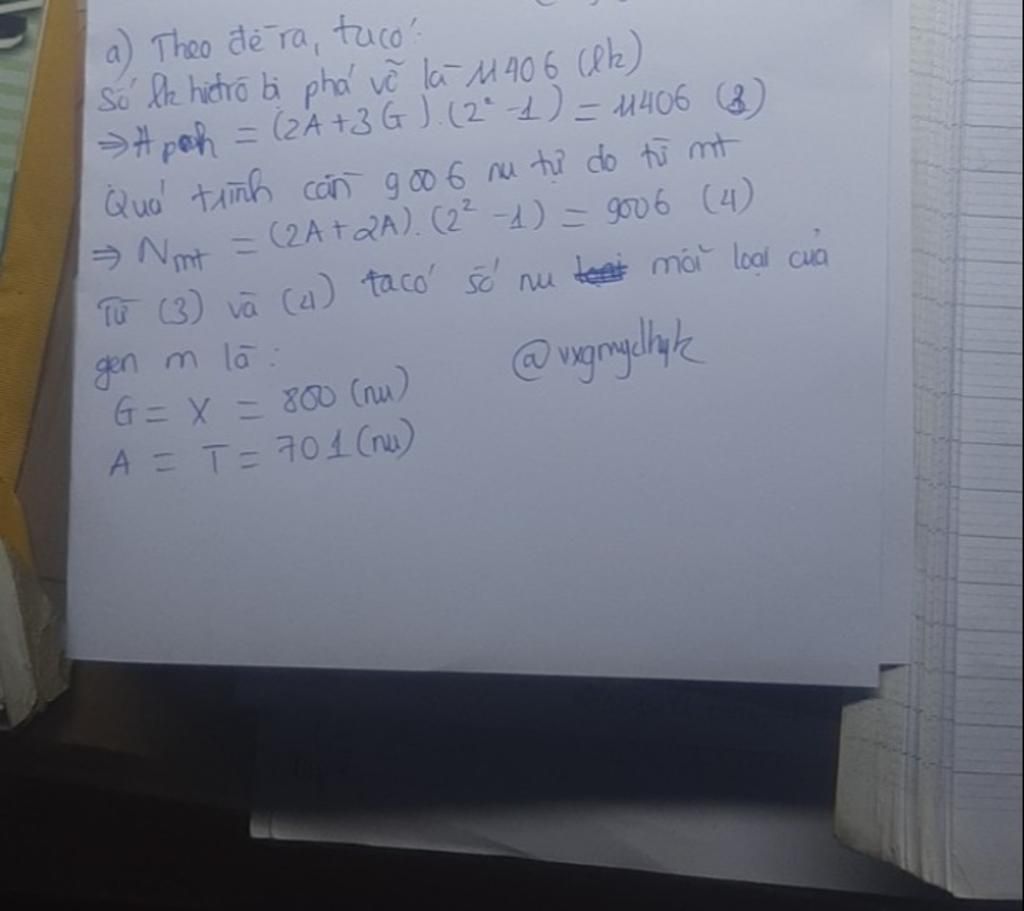 a) Theo đề ra, ta có:
Số lk hiđrô bị phá vỡ là 11406 (lk)
⇒ H pvh = (2A + 3G).(2² - 1) = 11406 (3)
Quá trình cần 9006 nu tự do từ mt
⇒ Nmt = (2A + 2A).(2² - 1) = 9006 (4)
Từ (3) và (4) ta có số nu mỗi loại của
gen m là:
@vxgmydhyk
G = X = 800 (nu)
A = T = 701 (nu)